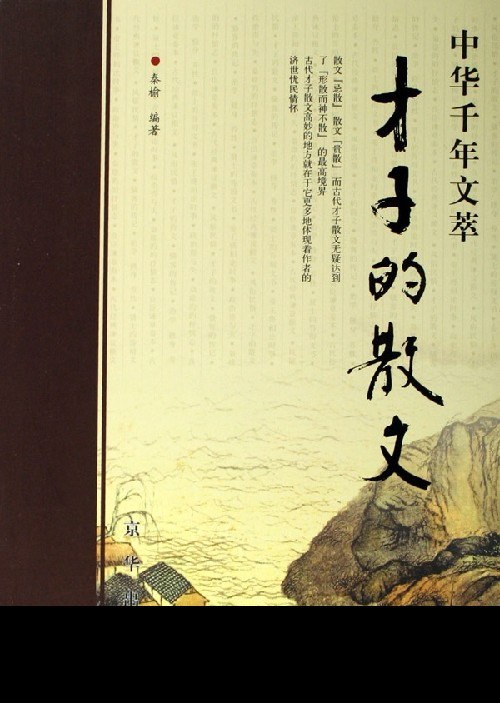 中华千年文萃
才子的散文
散文『忌散』散文『贵散』而古代才子散文无疑达到
了『形散而神不散』的最高境界
古代才子散文高妙的地方就在于它更多地体现着作者的
济世忧民情怀
秦榆 编著
京华